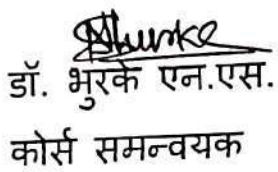 डॉ. भुरके एन.एस.
कोर्स समन्वयक